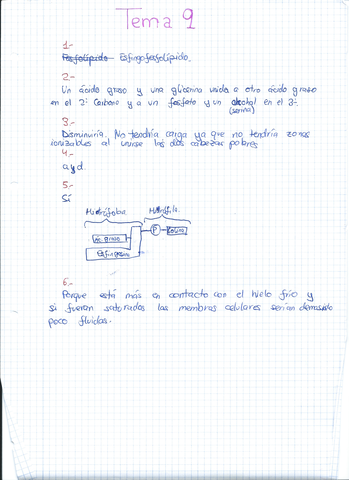 Tema 9
1-
Fosfolípido Esfingofosfolípido.
2-
Un ácido graso y una glicerina unida a otro ácido graso
en el 2º carbono y a un fosfato y un alcohol en el 3º.
(serina)
3.-
Disminuiría. No tendría carga ya que no tendría zonas
ionizables al unirse las dos cabezas polares
4.-
a y d.
5.-
Sí
Hidrófoba Hidrófila
Ác. graso P Colina
Esfingosina
6.-
Porque está más en contacto con el hielo frío y
si fueran saturados las membras celulares serían demasiado
poco fluidas.